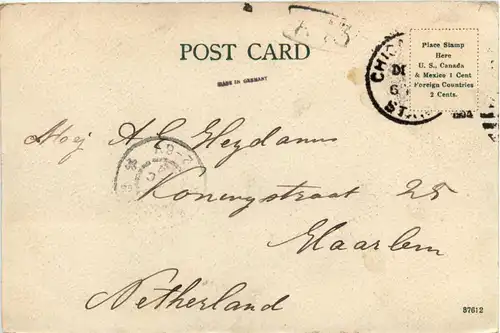 POST CARD
MADE IN GERMANY
Place Stamp
Here
U. S., Canada
& Mexico 1 Cent
Foreign Countries
2 Cents.
A. G. Heydanus
Koningstraat 25
Haarlem
Netherland
87612